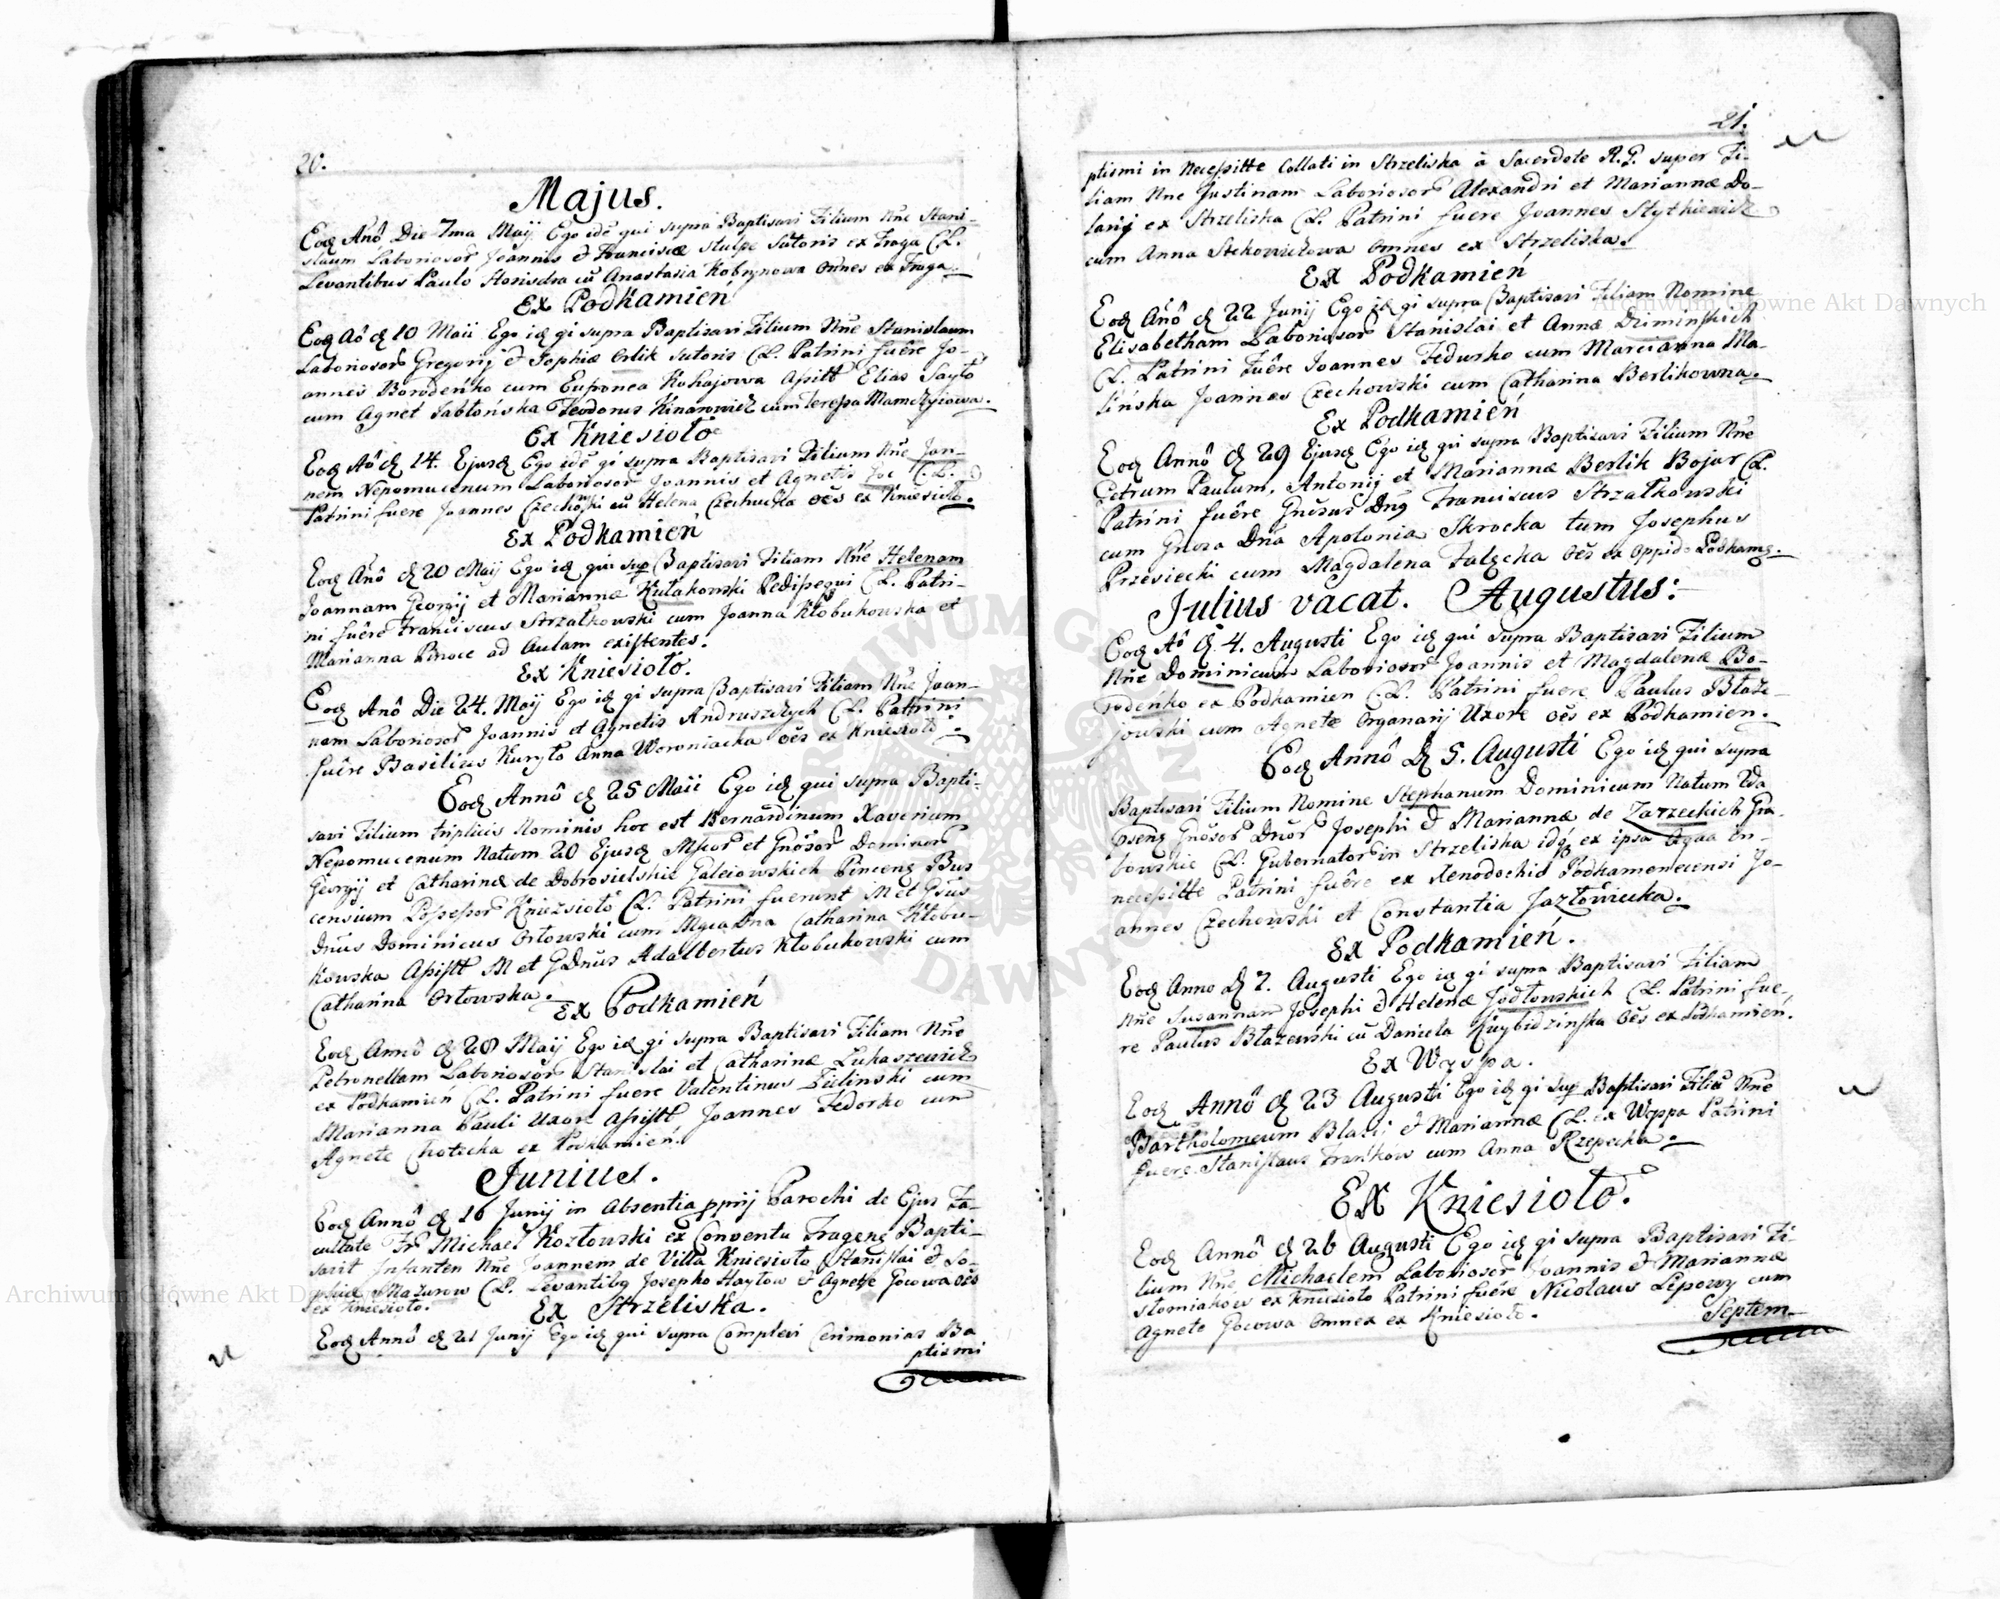 20.
Majus.
Eodq Anô Die 7ma Maij Ego ide qui supra Baptisavi Filium Nne Stani-
slaum Laboriosor Joannis & Franciscæ Stulpe Sutoris ex Fraga CL.
Levantibus Paulo Horisdra cu Anastasia Kobrynowa omnes ex Fraga.
Ex Podkamień
Eodq Aô dq 10 Maii Ego idq qi supra Baptisavi Filium Nne Stanislaum
Laboriosor Gregorij & Sophiæ Orlik Sutoris CL. Patrini fuêre Jo-
annes Borodeńko cum Euphronea Kohajowa Assitt Elias Sayło
cum Agnet Jabłońska Teodorus Kinarowicz cum Teressa Mamczyiowa.
Ex Kniesioło
Eodq Aô dq 14. Ejusdq Ego ide qi supra Baptisavi Filium Nne Joan-
nem Nepomucenum Laboriosor Joannis et Agnetis Joc CL.
Patrini fuere Joannes Czechoski cu Helena Czechucka oes ex Kniesioło.
Ex Podkamień
Eodq Anô dq 20 Maij Ego idq qui sup Baptisavi Filiam Nne Helenam
Joannam Georgij et Mariannæ Kułakowski Pedissequi CL. Patri-
ni fuêre Franciscus Strzałkowski cum Joanna Kłobukowska et
Marianna Pinoce ad Aulam existentes.
Ex Kniesioło.
Eodq Anô Die 24. Maij Ego idq qi supra Baptisavi Filiam Nne Joan-
nam Laboriosor Joannis et Agnetis Andruszczych CL. Patrini
fuêre Basilius Kuryło Anna Woroniacka oes ex Kniesioło.
Eodq Annô dq 25 Maii Ego idq qui supra Bapti-
savi Filium triplicis Nominis hoc est Bernardinum Xaverium
Nepomucenum Natum 20 Ejusdq Mfcor et Gnôsor Dominor
Georgij et Catharinæ de Dobrosielskie Galeiowskich Pincenq Bus
censium Possessor Kniezsioło CL. Patrini fuerunt M et Gsus
Dnus Dominicus Orłowski cum Mgca Dna Catharina Kłobu-
kowska Assistt M et G Dnus Adalbertus Kłobukowski cum
Catharina Orłowska.
Ex Podkamień
Eodq Annô dq 28 Maij Ego idq qi supra Baptisavi Filiam Nne
Petronellam Laboriosor Stanislai et Catharinæ Łukaszewicz
ex Podkamień CL. Patrini fuere Valentinus Zielinski cum
Marianna Pauli Uxore Assistt Joannes Fedorko cum
Agnete Chotecka ex Podkamień.
Junius.
Eodq Annô dq 16 Junij in Absentia pprij Parochi de Ejus Fa-
cultate Fr Michael Kozłowski ex Conventu Fragenq Bapti-
savit Infanten Nne Joannem de Villa Kniesioło Stanislai & So-
phiæ Mazurow CL. Levantibq Josepho Haytow & Agnete Gocowa oes
ex Kniesioło.
Ex Strzeliska.
Eodq Annô dq 21 Junij Ego idq qui supra Complevi Cerimonias Ba
ptismi
21.
ptismi in Necessitte Collati in Strzeliska à Sacerdote R.G. super Fi-
liam Nne Justinam Laboriosor Alexandri et Mariannæ Do-
larij ex Strzeliska CL. Patrini fuere Joannes Stythiewicz
cum Anna Stekowiczowa omnes ex Strzeliska.
Ex Podkamień
Eodq Anô dq 22 Junij Ego idq qi supra Baptisavi Filiam Nomine
Elisabetham Laboriosor Stanislai et Annæ Dziminskich
CL. Patrini Fuêre Joannes Fedurko cum Marcianna Ma-
lińska Joannes Czechowski cum Catharina Berlikowna.
Ex Podkamień
Eodq Annô dq 29 Ejusdq Ego idq qui supra Baptisavi Filium Nne
Petrum Paulum. Antonij et Mariannæ Berlik Bojar CL.
Patrini fuêre Gnôsus Dnq Franciscus Strzałkowski
cum Gnosa Dna Apolonia Skrocka tum Josephus
Przesiecki cum Magdalena Falęcka oes ex oppido Podkamq.
Julius vacat. Augustus:
Eodq Aô dq 4. Augusti Ego idq qui supra Baptisavi Filium
Nne Dominicum Laboriosor Joannis et Magdalenæ Bo-
rodeńko ex Podkamien CL. Patrini fuere Paulus Błaże-
jowski cum Agnete Organarij Uxore oes ex Podkamien.
Eodq Annô dq 5. Augusti Ego idq qui supra
Baptisavi Filium Nomine Stephanum Dominicum Natum 2da
Gnôsor Dnor Josephi & Mariannæ de Zarzeckich Gra-
bowskie CL. Gubernator in Strzeliska idq ex ipsa Aqua in
necessitte Patrini fuêre ex Xenodochio Podkamenecensi Jo-
annes Czechowski et Constantia Jazłowiecka.
Ex Podkamień.
Eodq Anno dq 7. Augusti Ego iq qi supra Baptisavi Filiam
Nne Susannam Josephi & Helenæ Jodłowskich CL. Patrini fue-
re Paulus Błażewski cu Daniela Kuybidzińska oes ex Podkamien.
Ex Wyspa.
Eodq Annô dq 23 Augusti Ego idq qi sup Baptisavi Filiu Nne
Bartholomeum Blasij & Mariannæ CL. ex Wyspa Patrini
fuere Stanislaus Frańkow cum Anna Rzepecka.
Ex Kniesioło.
Eodq Annô dq 26 Augusti Ego idq qi supra Baptisavi Fi-
lium Nne Michaelem Laboriosor Joannis & Mariannæ
Słomiakow ex Kniesioło Patrini fuêre Nicolaus Lepowy cum
Agnete Gocowa omnes ex Kniesioło.
Septem-
Archiwum Główne Akt Dawnych
Archiwum Główne Akt Dawnych
ARCHIWUM GŁÓWNE AKT DAWNYCH